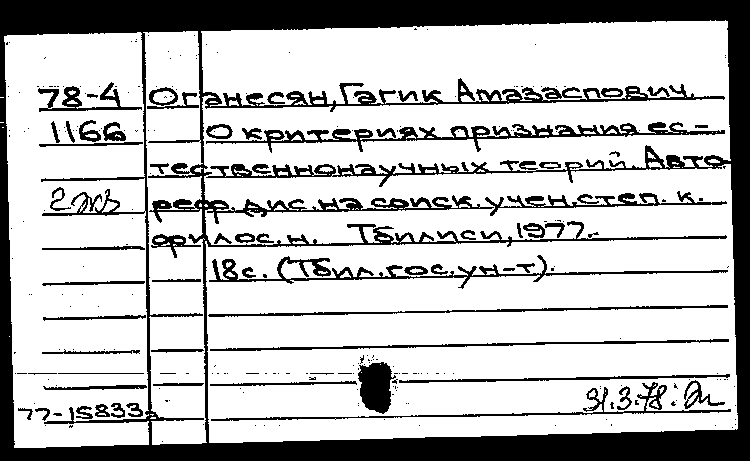 78-4 Оганесян, Гагик Амазаспович.
1166 О критериях признания ес-
тественнонаучных теорий. Авто-
2 экз реф. дис. на соиск. учен. степ. к.
филос. н. Тбилиси, 1977.
18с. (Тбил. гос. ун-т).
31.3.78.
77-15833а